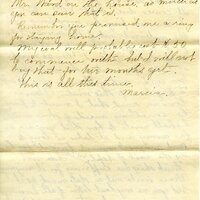 Mr. Ward on the house, as much as
you can over that is.
Remember you promised me a ring
for staying home.
My coat will probably cost $50
to commence with but I will not
buy that for two months yet.
This is all this time,
Marcia.